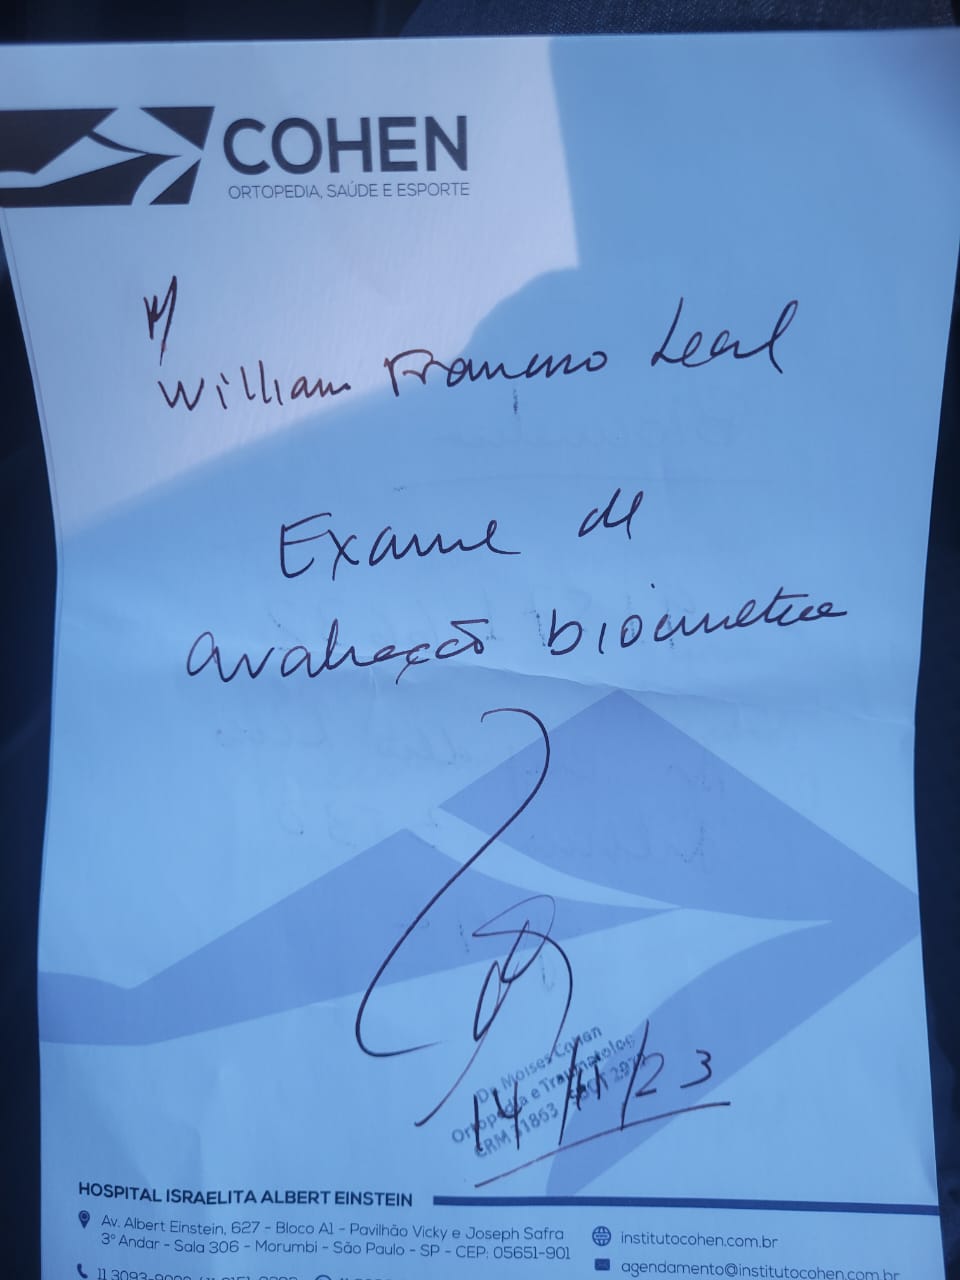 COHEN
ORTOPEDIA, SAÚDE E ESPORTE
P/
William Francisco Leal
Exame de
avaliação biocinética
Dr. Moises Cohen
Ortopedia e Traumatologia
CRM 31863 SBOT
14/11/23
HOSPITAL ISRAELITA ALBERT EINSTEIN
Av. Albert Einstein, 627 - Bloco A1 - Pavilhão Vicky e Joseph Safra
3º Andar - Sala 306 - Morumbi - São Paulo - SP - CEP: 05651-901
institutocohen.com.br
agendamento@institutocohen.com.br